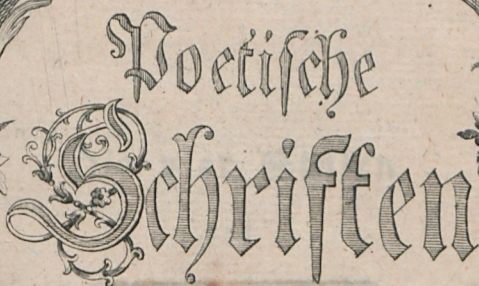 Poetische
Schriften